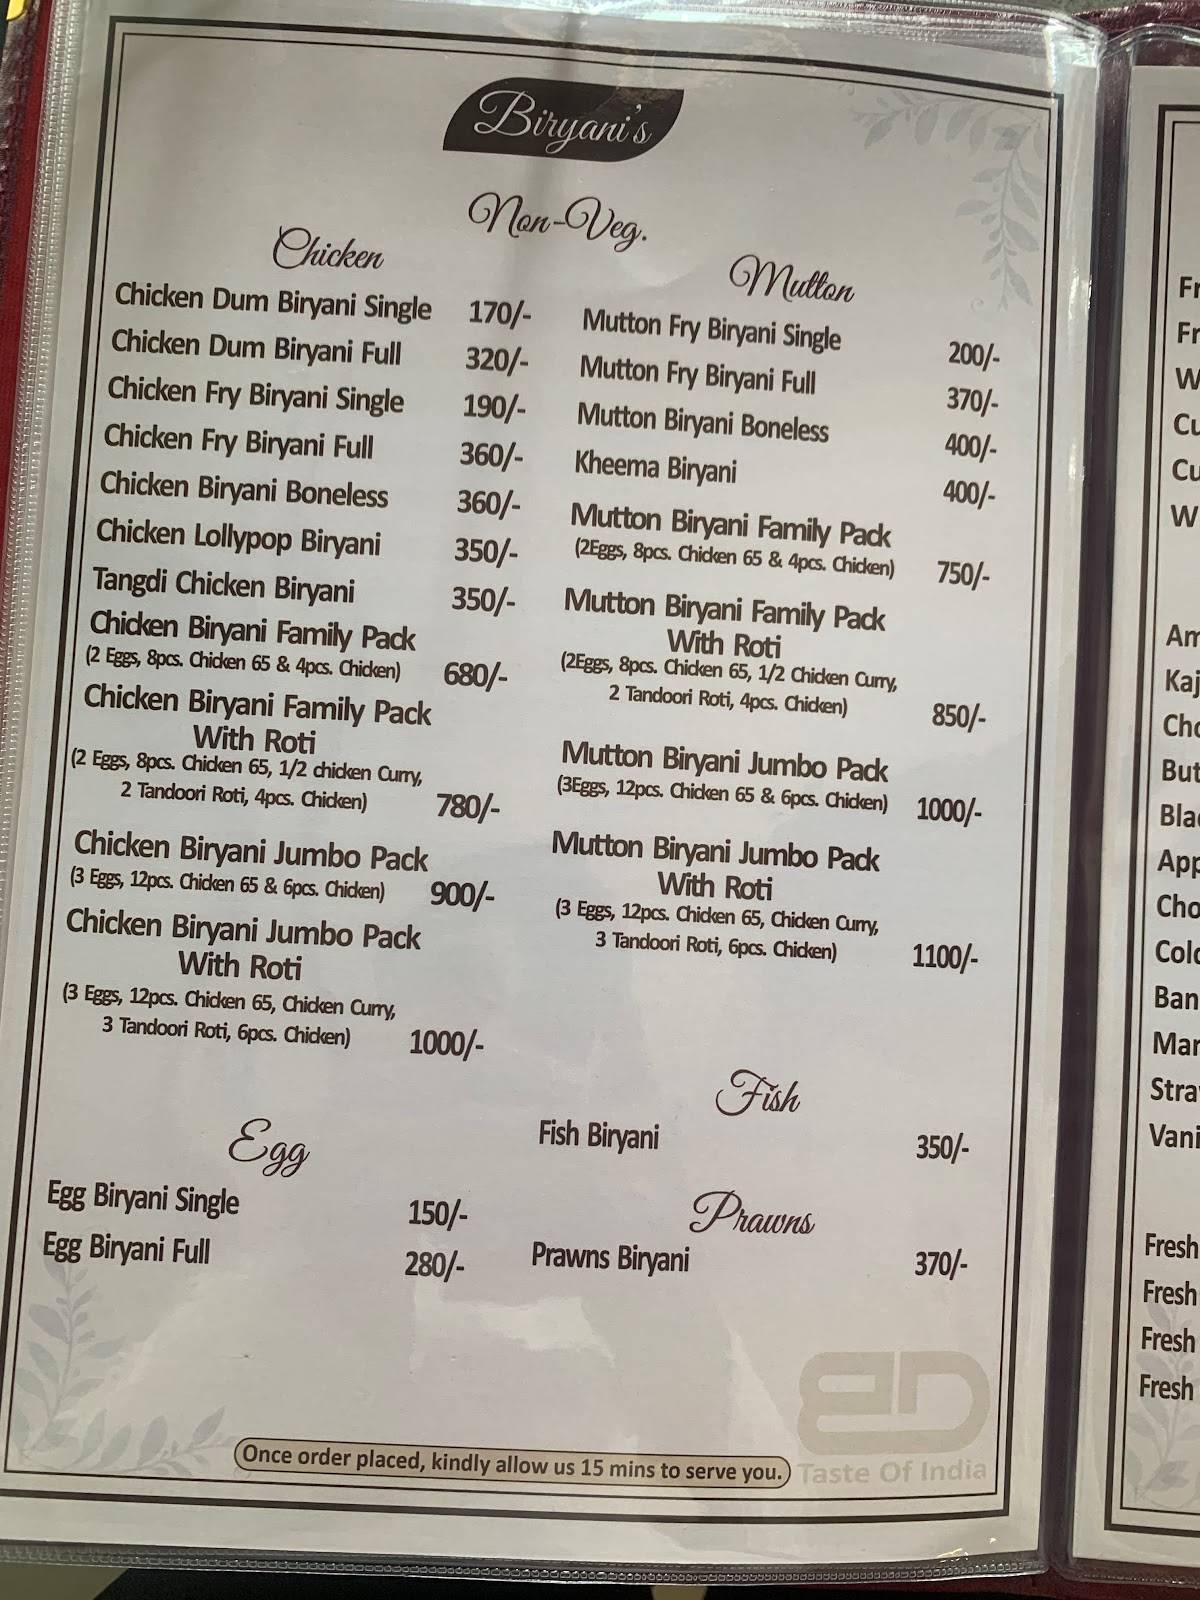 Biryani's
Non-Veg.
Chicken
Chicken Dum Biryani Single 170/-
Chicken Dum Biryani Full 320/-
Chicken Fry Biryani Single 190/-
Chicken Fry Biryani Full 360/-
Chicken Biryani Boneless 360/-
Chicken Lollypop Biryani 350/-
Tangdi Chicken Biryani 350/-
Chicken Biryani Family Pack
(2 Eggs, 8pcs. Chicken 65 & 4pcs. Chicken) 680/-
Chicken Biryani Family Pack
With Roti
(2 Eggs, 8pcs. Chicken 65, 1/2 chicken Curry,
2 Tandoori Roti, 4pcs. Chicken) 780/-
Chicken Biryani Jumbo Pack
(3 Eggs, 12pcs. Chicken 65 & 6pcs. Chicken) 900/-
Chicken Biryani Jumbo Pack
With Roti
(3 Eggs, 12pcs. Chicken 65, Chicken Curry,
3 Tandoori Roti, 6pcs. Chicken) 1000/-
Egg
Egg Biryani Single 150/-
Egg Biryani Full 280/-
Mutton
Mutton Fry Biryani Single 200/-
Mutton Fry Biryani Full 370/-
Mutton Biryani Boneless 400/-
Kheema Biryani 400/-
Mutton Biryani Family Pack
(2Eggs, 8pcs. Chicken 65 & 4pcs. Chicken) 750/-
Mutton Biryani Family Pack
With Roti
(2Eggs, 8pcs. Chicken 65, 1/2 Chicken Curry,
2 Tandoori Roti, 4pcs. Chicken) 850/-
Mutton Biryani Jumbo Pack
(3Eggs, 12pcs. Chicken 65 & 6pcs. Chicken) 1000/-
Mutton Biryani Jumbo Pack
With Roti
(3 Eggs, 12pcs. Chicken 65, Chicken Curry,
3 Tandoori Roti, 6pcs. Chicken) 1100/-
Fish
Fish Biryani 350/-
Prawns
Prawns Biryani 370/-
Once order placed, kindly allow us 15 mins to serve you.
Taste Of India
Fresh
Fresh
Fresh
Fresh